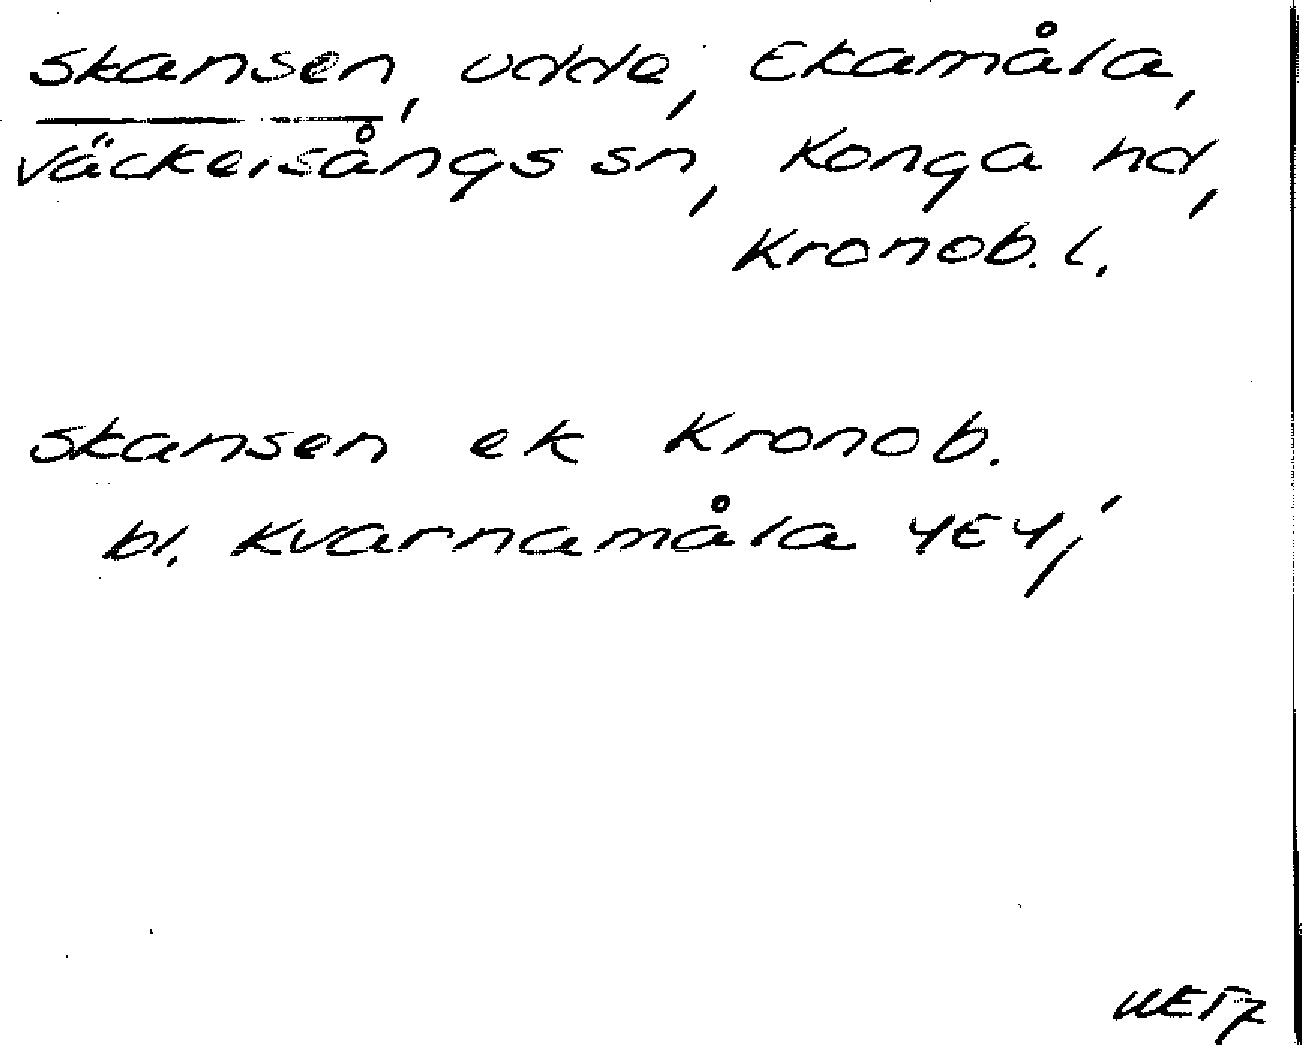 Skansen, udde, Ekamåla,
Väckelsångs sn, Konga hd,
Kronob. l.
Skansen ek Kronob.
bl. Kvarnamåla 4E4,